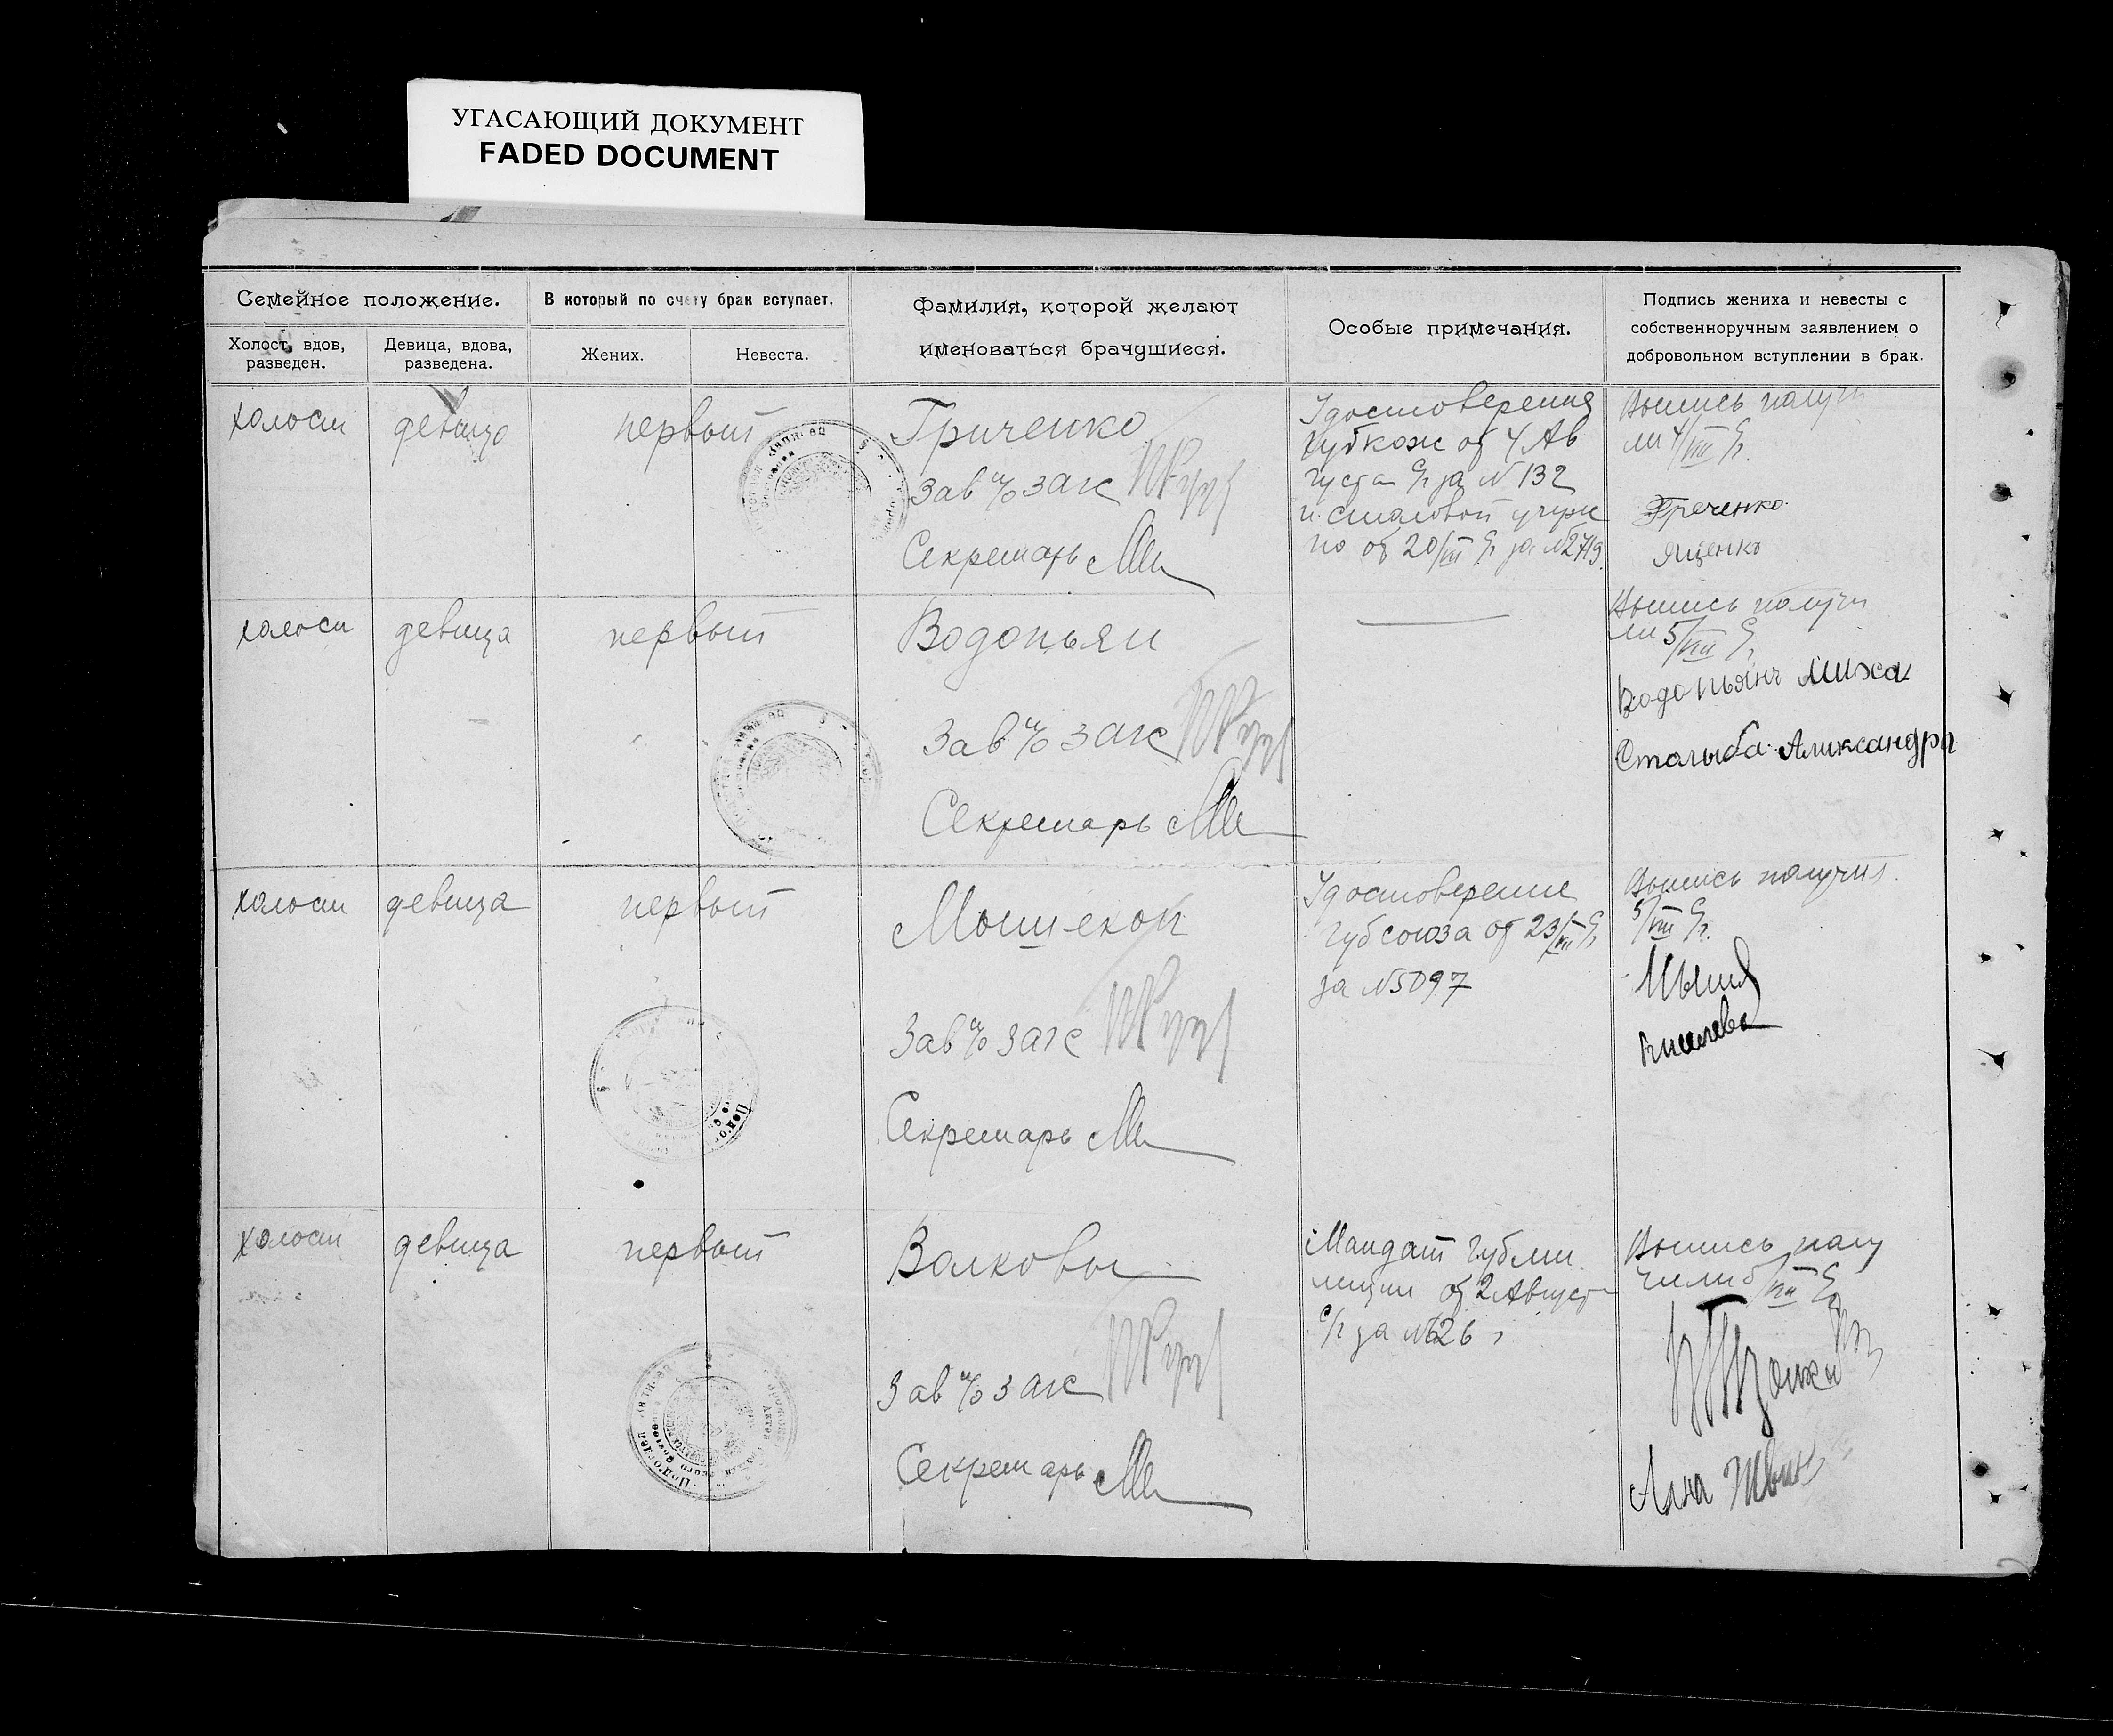 УГАСАЮЩИЙ ДОКУМЕНТ
FADED DOCUMENT
Семейное положение.
В который по счету брак вступает.
Фамилия, которой желают
именоваться брачущиеся.
Особые примечания.
Подпись жениха и невесты с
собственноручным заявлением о
добровольном вступлении в брак.
Холост, вдов,
разведен.
Девица, вдова,
разведена.
Жених.
Невеста.
холост
девица
первый
Гриченко
Зав п/о загс
Секретарь
Удостоверения
Губкож от 4 Ав
густа с/г за N 132
и столовой
по от 20/VII с/г за N2719.
Выпись получи
ли 4/VIII с/г.
Греченко
Яценко
холост
девица
первый
Водопьян
Зав п/о загс
Секретарь
Выпись получи
ли 5/VIII с/г.
Водопьянъ Миха
Сталыба Аликсандра
холост
девица
первый
Зав п/о загс
Секретарь
Удостоверение
Губсоюза от 23/VII с/г
за N5097
Выпись получил.
5/VIII с/г.
холост
девица
первый
Волковы
Зав п/о загс
Секретарь
Мандат Губми
лиции от 2 Августа
с/г за N626
Выпись полу
чили 5/VIII с/г
Анна